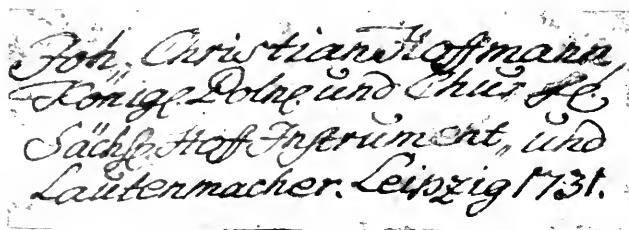 Joh. Christian Hoffmann,
Königl. Polne. und Chur Fl.
Sächs. Hoff Instrument „ und
Lautenmacher. Leipzig 1731.